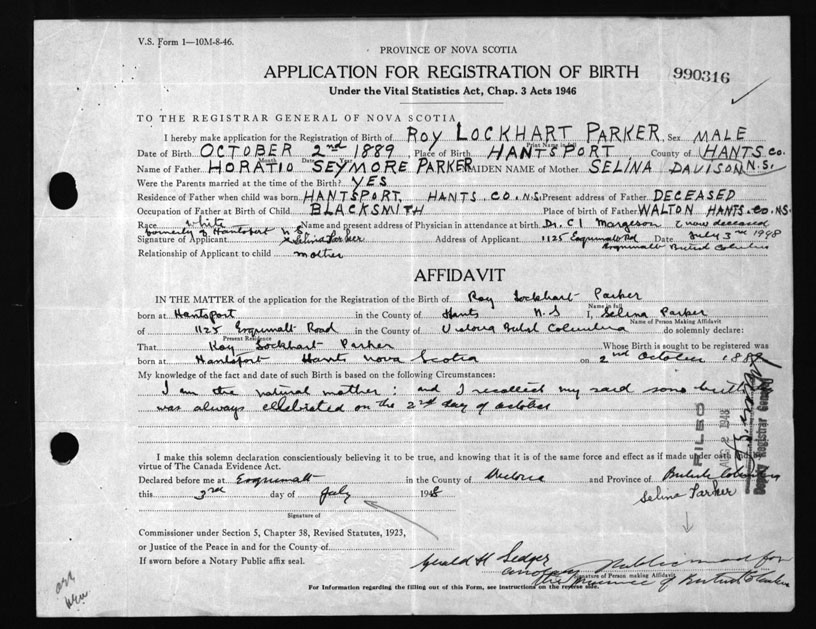 V.S. Form 1—10M-8-46.
PROVINCE OF NOVA SCOTIA
APPLICATION FOR REGISTRATION OF BIRTH
990316
Under the Vital Statistics Act, Chap. 3 Acts 1946
TO THE REGISTRAR GENERAL OF NOVA SCOTIA
I hereby make application for the Registration of Birth of ROY LOCKHART PARKER Sex MALE
Print Name in full
Date of Birth OCTOBER 2nd 1889 Place of Birth HANTSPORT County of HANTS CO. N.S.
Month Date Year
Name of Father HORATIO SEYMORE PARKER MAIDEN NAME OF Mother SELINA DAVISON
Were the Parents married at the time of the Birth? YES
Residence of Father when child was born HANTSPORT, HANTS. CO. N.S. Present address of Father DECEASED
Occupation of Father at Birth of Child BLACKSMITH Place of birth of Father WALTON HANTS. CO. N.S.
Race white Name and present address of Physician in attendance at birth Dr. C I Margeson now deceased
formerly of Hantsport N.S.
Signature of Applicant x Selina Parker Address of Applicant 1125 Esquimalt Rd Date July 3rd 1948
Esquimalt British Columbia
Relationship of Applicant to child mother
AFFIDAVIT
IN THE MATTER of the application for the Registration of the Birth of Roy Lockhart Parker
Name in full
born at Hantsport in the County of Hants N.S I, Selina Parker
Name of Person Making Affidavit
of 1125 Esquimalt Road in the County of Victoria British Columbia do solemnly declare:
Present Residence
That Roy Lockhart Parker Whose Birth is sought to be registered was
born at Hantsport Hants Nova Scotia on 2nd October 1889
My knowledge of the fact and date of such Birth is based on the following Circumstances:
I am the natural mother: and I recollect my said sons birthday
was always celebrated on the 2nd day of October
FILED
1948
Deputy Registrar General
I make this solemn declaration conscientiously believing it to be true, and knowing that it is of the same force and effect as if made under oath and by
virtue of The Canada Evidence Act.
Declared before me at Esquimalt in the County of Victoria and Province of British Columbia
this 3rd day of July 1948
Selina Parker
Signature of
Commissioner under Section 5, Chapter 38, Revised Statutes, 1923,
or Justice of the Peace in and for the County of
If sworn before a Notary Public affix seal.
Gerald H Ledger
a notary Public in and for
the Province of British Columbia
Signature of Person making Affidavit
For Information regarding the filling out of this Form, see instructions on the reverse side.